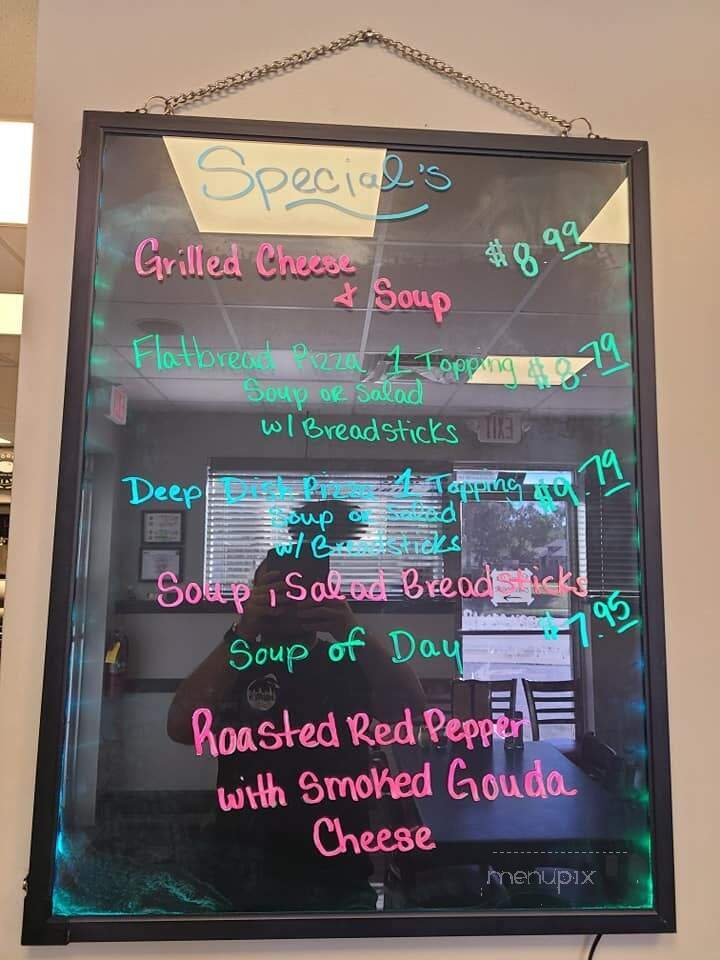 Special's
Grilled Cheese $8.99
& Soup
Flatbread Pizza 1 Topping $8.79
Soup or Salad
w/ Breadsticks
Deep Dish Pizza 1 Topping $9.79
Soup or Salad
w/ Breadsticks
Soup, Salad Breadsticks
$7.95
Soup of Day
Roasted Red Pepper
with Smoked Gouda
Cheese
EXIT
menupix